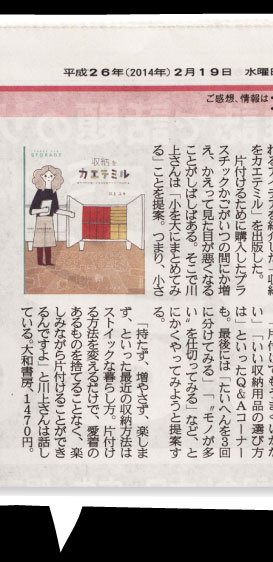 平成26年(2014年)2月19日 水曜
ご感想、情報は
アイデアを紹介した「収納
をカエテミル」を出版した。
片付けるために購入したプラ
スチックかごがいつの間にか増
え、かえって見た目が悪くなる
ことがしばしばある。そこで川
上さんは「小を大にまとめてみ
る」ことを提案。つまり、小さ
収納を
カエテミル
「片付けてもうまくいかな
い」「いい収納用品の選び方
」といったQ&Aコーナー
も。最後には「たいへんを3回
に分けてみる」「〝モノが多
い〟を仕切ってみる」など、と
にかくやってみようと提案す
る。
「持たず、増やさず、楽しま
ず」といった最近の収納方法は
ストイックな暮らし方。片付け
る方法を変えるだけで、愛着の
あるものを捨てることなく、楽
しみながら片付けることができ
るんですよ」と川上さんは話し
ている。大和書房、1470円。